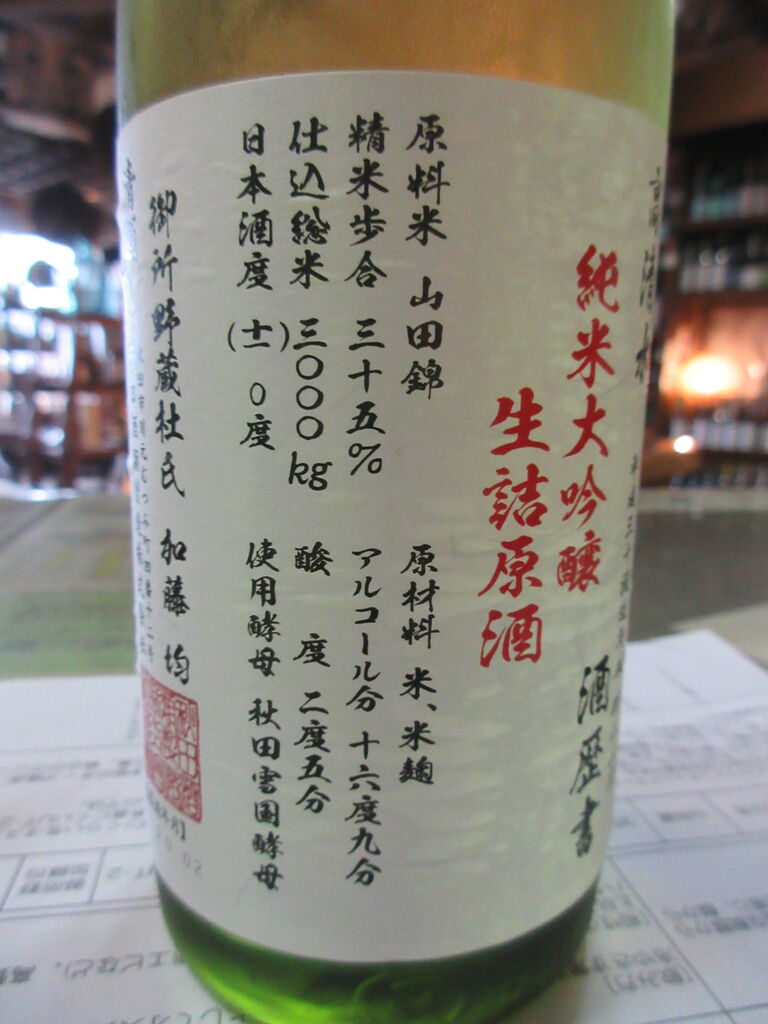 純米大吟醸 酒歴書
生詰原酒
原料米 山田錦 原材料 米、米麹
精米歩合 三十五% アルコール分 十六度九分
仕込総米 三〇〇〇kg 酸 度 二度五分
日本酒度 (十)〇度 使用酵母 秋田雪国酵母
御所野蔵杜氏 加藤 均